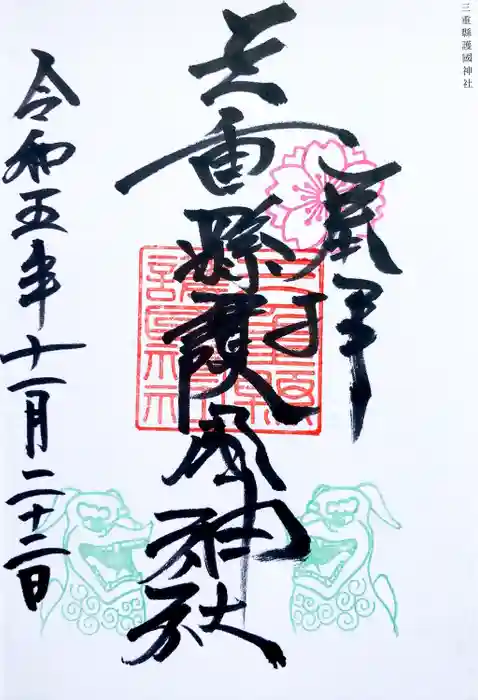 三重縣護國神社
奉拝
三重縣護國神社
令和五年十一月二十三日